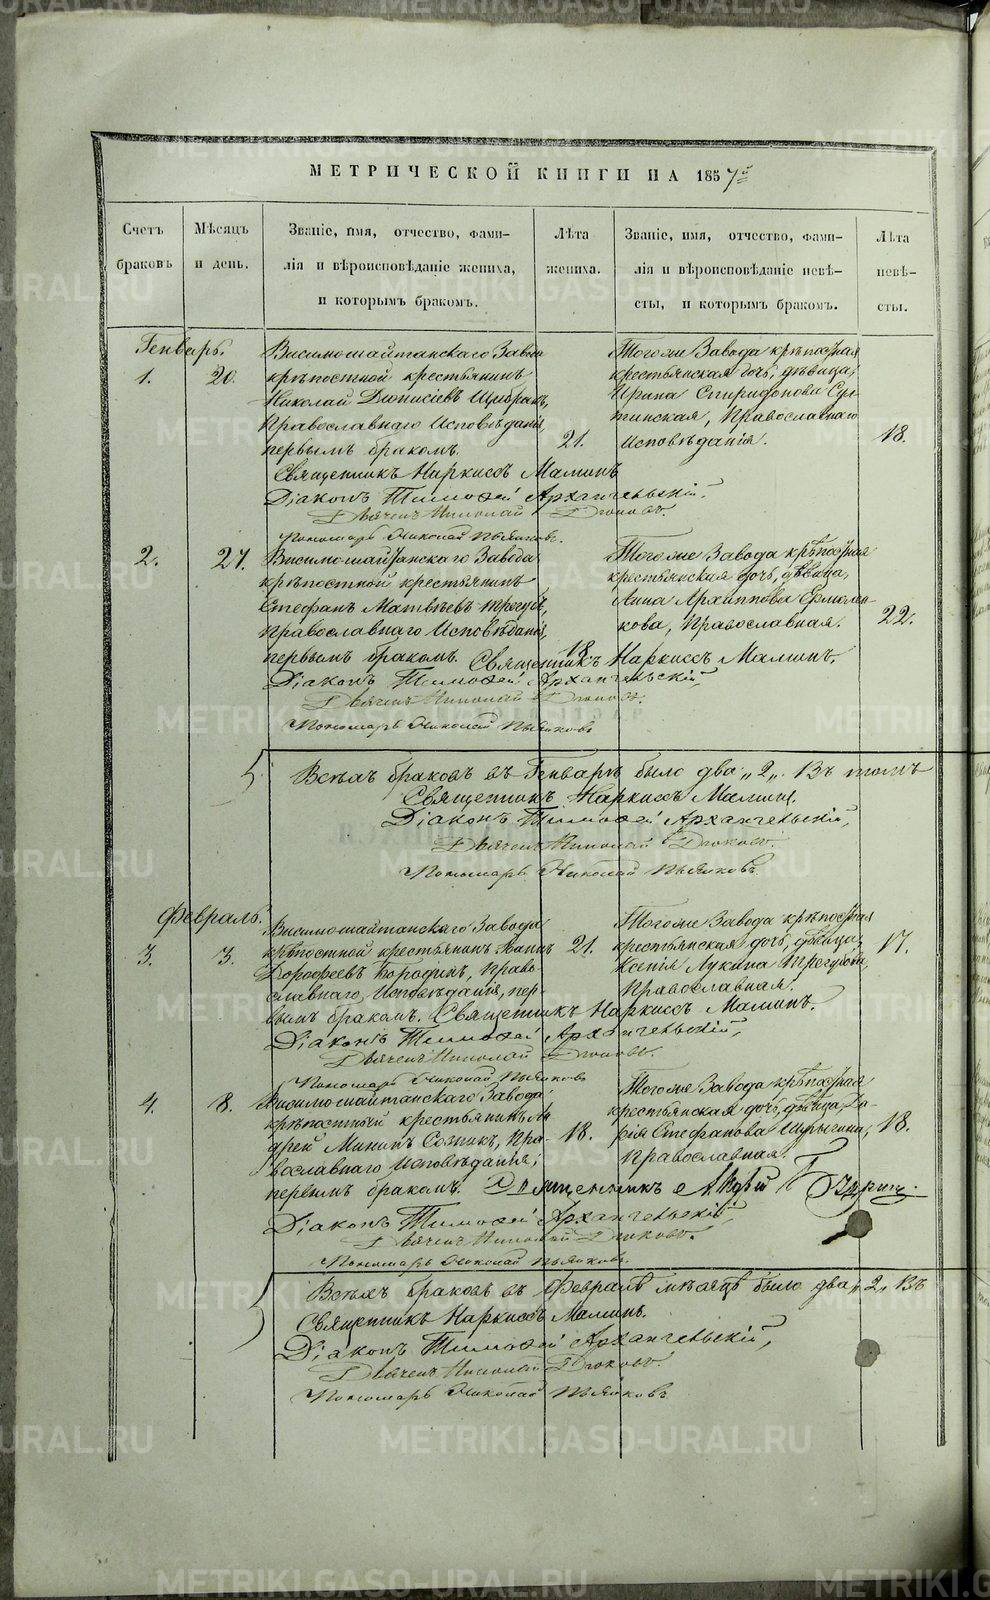 МЕТРИЧЕСКОЙ КНИГИ НА 1857й
Счетъ браковъ
Мѣсяцъ и день.
Званіе, имя, отчество, фами-
лія и вѣроисповѣданіе жениха,
и которымъ бракомъ.
Лѣта жениха.
Званіе, имя, отчество, фами-
лія и вѣроисповѣданіе невѣ-
сты, и которымъ бракомъ.
Лѣта невѣ-
сты.
Генварь.
1. 20.
Висимошайтанскаго Завода
крѣпостной крестьянинъ
Николай Діонисіевъ
Православнаго Исповѣданія,
первымъ бракомъ.
21.
Тогоже Завода крѣпостная
крестьянская дочь, дѣвица,
Ирина Спиридонова Сул-
тинская, Православнаго
Исповѣданія.
18.
Священникъ Наркисъ Маминъ
Діаконъ Тимоѳей Архангельскій.
Дьячекъ Николай
Пономарь Николай
2. 27.
Висимошайтанскаго Завода
крѣпостной крестьянинъ
Стефанъ Матвѣевъ Трегуб,
Православнаго Исповѣданія,
первымъ бракомъ.
18.
Тогоже Завода крѣпостная
крестьянская дочь, дѣвица,
Анна Архиппова Ермолен-
кова, Православная.
22.
Священникъ Наркиссъ Маминъ.
Діаконъ Тимоѳей Архангельскій,
Дьячекъ Николай
Пономарь Николай
Всѣхъ браковъ въ Генварѣ было два „2„. Въ томъ
Священникъ Наркиссъ Маминъ.
Діаконъ Тимоѳей Архангельскій,
Дьячекъ Николай
Пономарь Николай
Февраль.
3. 3.
Висимошайтанскаго Завода
крѣпостной крестьянинъ Іоаннъ
Дорофеевъ Бородинъ, Право-
славнаго Исповѣданія, пер-
вымъ бракомъ.
21.
Тогоже Завода крѣпостная
крестьянская дочь, дѣвица,
Ксенія Лукина
Православная.
17.
Священникъ Наркиссъ Маминъ.
Діаконъ Тимоѳей Архангельскій,
Дьячекъ Николай
Пономарь Николай
4. 8.
Висимошайтанскаго Завода
крѣпостный крестьянинъ Ан-
дрей Мининъ Созникъ, Пра-
вославнаго Исповѣданія,
первымъ бракомъ.
18.
Тогоже Завода крѣпостная
крестьянская дочь, дѣвица, Да-
рія Стефанова Шрыгина,
Православная.
18.
Діаконъ Тимоѳей Архангельскій,
Дьячекъ Николай
Пономарь Николай
Всѣхъ браковъ въ Февралѣ мѣсяцѣ было два „2„ Въ
Священникъ Наркиссъ Маминъ.
Діаконъ Тимоѳей Архангельскій,
Дьячекъ Николай
Пономарь Николай
METRIKI.GASO-URAL.RU